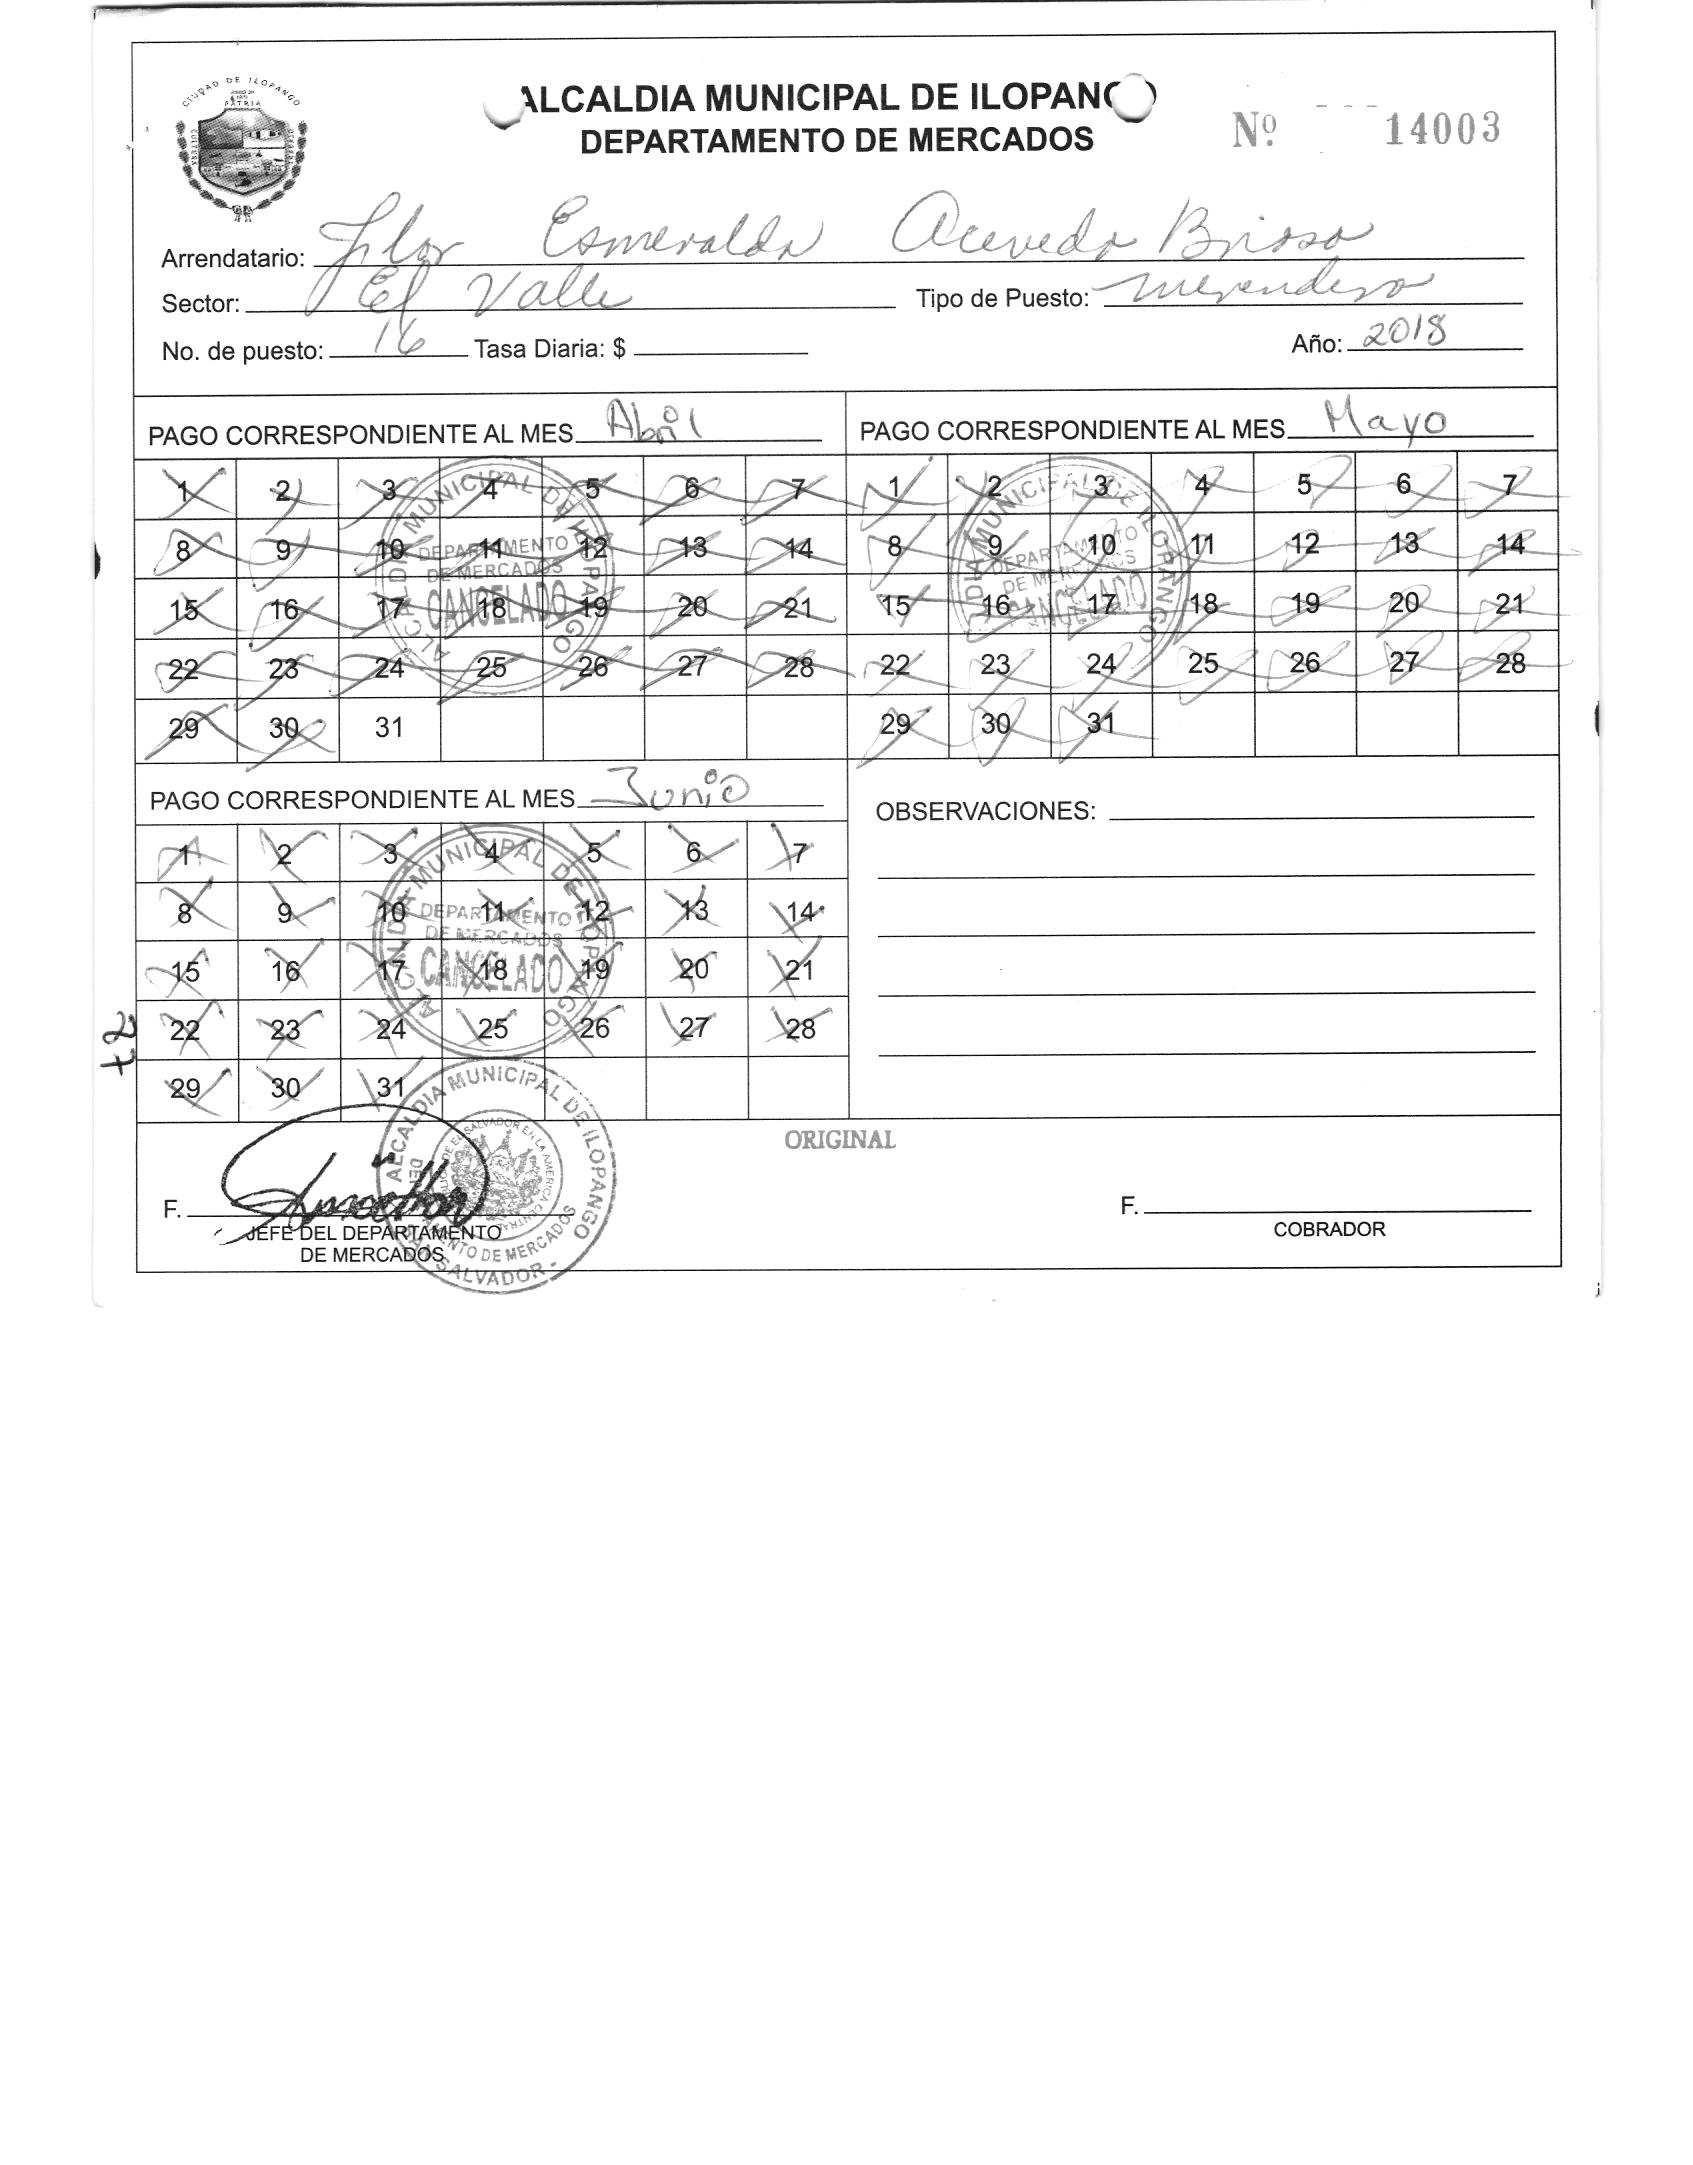 CIUDAD DE ILOPANGO
PATRIA
ALCALDIA MUNICIPAL DE ILOPANGO
DEPARTAMENTO DE MERCADOS
Nº 14003
Arrendatario: Flor Esmeralda Acevedo Brioso
Sector: El Valle Tipo de Puesto: merendero
No. de puesto: 16 Tasa Diaria: $ Año: 2018
PAGO CORRESPONDIENTE AL MES Abril
1 2 3 4 5 6 7
8 9 10 11 12 13 14
15 16 17 18 19 20 21
22 23 24 25 26 27 28
29 30 31
ALCALDIA MUNICIPAL DE ILOPANGO
DEPARTAMENTO
DE MERCADOS
CANCELADO
PAGO CORRESPONDIENTE AL MES Mayo
1 2 3 4 5 6 7
8 9 10 11 12 13 14
15 16 17 18 19 20 21
22 23 24 25 26 27 28
29 30 31
ALCALDIA MUNICIPAL DE ILOPANGO
DEPARTAMENTO
DE MERCADOS
CANCELADO
PAGO CORRESPONDIENTE AL MES Junio
1 2 3 4 5 6 7
8 9 10 11 12 13 14
15 16 17 18 19 20 21
22 23 24 25 26 27 28
29 30 31
ALCALDIA MUNICIPAL DE ILOPANGO
DEPARTAMENTO
DE MERCADOS
CANCELADO
OBSERVACIONES:
27
ORIGINAL
F.
JEFE DEL DEPARTAMENTO
DE MERCADOS
ALCALDIA MUNICIPAL DE ILOPANGO
DE EL SALVADOR EN LA AMERICA CENTRAL
DEPARTAMENTO DE MERCADOS
SAN SALVADOR -
F.
COBRADOR